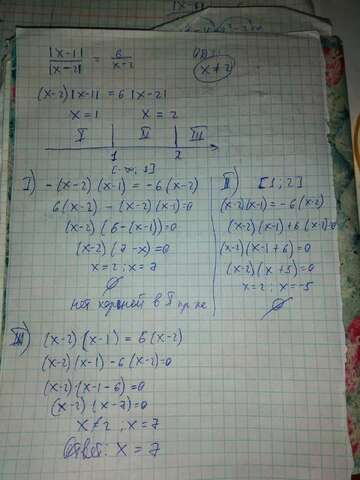 |x-1| / |x-2| = 6 / x-2
ОДЗ:
x≠2
(x-2)|x-1| = 6|x-2|
x=1 x=2
I II III
1 2
I) -(x-2)(x-1) = -6(x-2)
6(x-2) - (x-2)(x-1)=0
(x-2)(6-(x-1))=0
(x-2)(7-x)=0
x=2; x=7
∅
нет корней в I
II) [1;2]
(x-2)(x-1)=-6(x-2)
(x-2)(x-1+6)=0
(x-2)(x+5)=0
x=2; x=-5
∅
III) (x-2)(x-1) = 6(x-2)
(x-2)(x-1)-6(x-2)=0
(x-2)(x-1-6)=0
(x-2)(x-7)=0
x≠2; x=7
Ответ: x=7